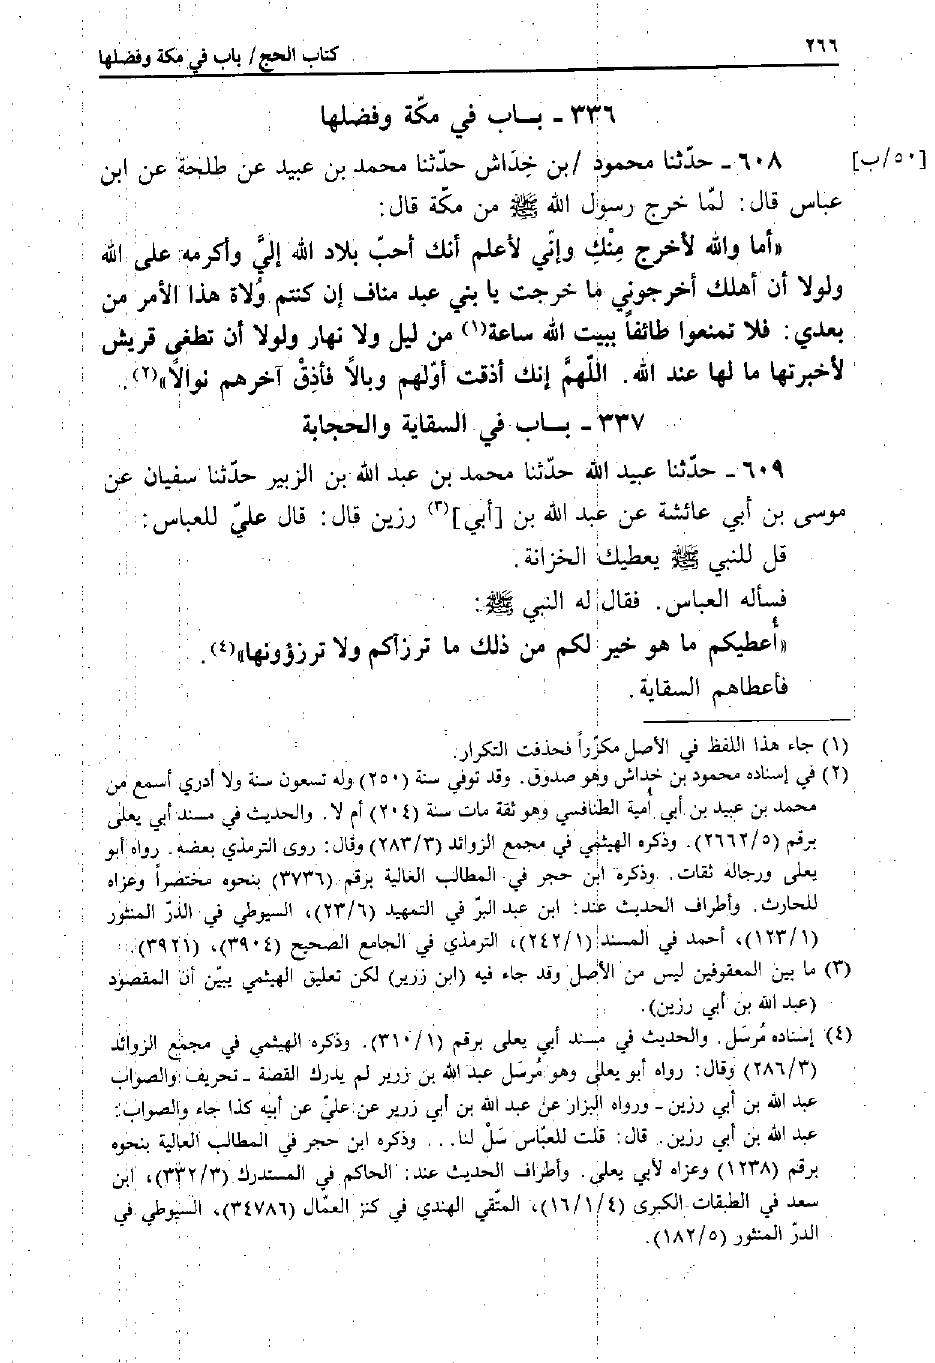 ٢٦٦
كتاب الحج / باب في مكة وفضلها
٣٣٦ - بـاب في مكّة وفضلها
[٥٠/ب]
٦٠٨ - حدّثنا محمود / بن خِدَاش حدّثنا محمد بن عبيد عن طلحة عن ابن
عباس قال: لمّا خرج رسول الله ﷺ من مكّة قال:
«أما والله لأخرج مِنْكِ وإنّي لأعلم أنك أحبّ بلاد الله إليَّ وأكرمه على الله
ولولا أن أهلك أخرجوني ما خرجت يا بني عبد مناف إن كنتم وُلاة هذا الأمر من
بعدي: فلا تمنعوا طائفاً ببيت الله ساعة(١) من ليل ولا نهار ولولا أن تطغى قريش
لأخبرتها ما لها عند الله. اللّهمَّ إنك أذقت أوّلهم وبالاً فأذِقْ آخرهم نوالاً»(٢).
٣٣٧ - بـاب في السقاية والحجابة
٦٠٩ - حدّثنا عبيد الله حدّثنا محمد بن عبد الله بن الزبير حدّثنا سفيان عن
موسى بن أبي عائشة عن عبد الله بن [أبي](٣) رزين قال: قال عليّ للعباس:
قل للنبي ﷺ يعطيك الخزانة.
فسأله العباس. فقال له النبي ﷺ:
«أُعطيكم ما هو خير لكم من ذلك ما ترزآكم ولا ترزؤونها»(٤).
فأعطاهم السقاية.
(١) جاء هذا اللفظ في الأصل مكرّراً فحذفت التكرار.
(٢) في إسناده محمود بن خداش وهو صدوق. وقد توفي سنة (٢٥٠) وله تسعون سنة ولا أدري أسمع من
محمد بن عبيد بن أبي أمية الطنافسي وهو ثقة مات سنة (٢٠٤) أم لا. والحديث في مسند أبي يعلى
برقم (٢٦٦٢/٥). وذكره الهيثمي في مجمع الزوائد (٢٨٣/٣) وقال: روى الترمذي بعضه. رواه أبو
يعلى ورجاله ثقات. وذكره ابن حجر في المطالب العالية برقم (٣٧٣٦) بنحوه مختصراً وعزاه
للحارث. وأطراف الحديث عند: ابن عبد البرّ في التمهيد (٢٣/٦)، السيوطي في الدّر المنثور
(١٢٣/١)، أحمد في المسند (٢٤٢/١)، الترمذي في الجامع الصحيح (٣٩٠٤)، (٣٩٢١).
(٣) ما بين المعقوفين ليس من الأصل وقد جاء فيه (ابن زرير) لكن تعليق الهيثمي يبيّن أن المقصود
(عبد الله بن أبي رزين).
(٤) إسناده مُرسَل. والحديث في مسند أبي يعلى برقم (٣١٠/١). وذكره الهيثمي في مجمع الزوائد
(٢٨٦/٣) وقال: رواه أبو يعلى وهو مُرسَل عبد الله بن زرير لم يدرك القصة - تحريف والصواب
عبد الله بن أبي رزين - ورواه البزار عن عبد الله بن أبي زرير عن عليّ عن أبيه كذا جاء والصواب:
عبد الله بن أبي رزين. قال: قلت للعبّاس سَلْ لنا... وذكره ابن حجر في المطالب العالية بنحوه
برقم (١٢٣٨) وعزاه لأبي يعلى. وأطراف الحديث عند: الحاكم في المستدرك (٣٣٢/٣)، ابن
سعد في الطبقات الكبرى (١٦/١/٤)، المتّقي الهندي في كنز العمّال (٣٤٧٨٦)، السيوطي في
الدرّ المنثور (١٨٢/٥).